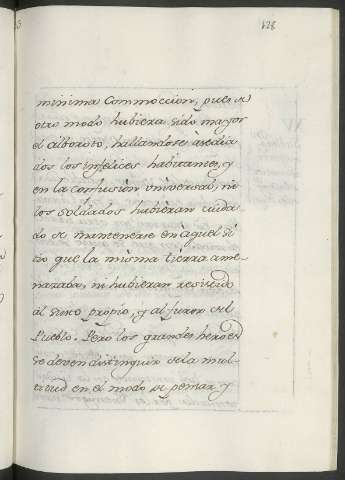 128
minima Commoccion, pues de
otro modo hubiera sido mayor
el alboroto, hallandose asedia
dos los infelices habitantes, y
en la confusion universal, ni
los soldados hubieran cuida-
do de mantenerse en aquel si
tio que la misma tierra ame
nazaba, ni hubieran resistido
al susto propio, y al furor del
Pueblo. Pero los grandes heroes
se deven distinguir de la mul-
titud en el modo de pensar, y